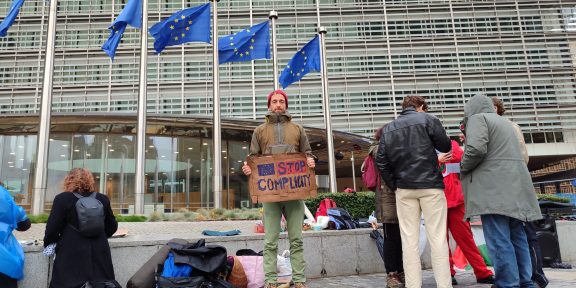 STOP
COMPLICITY